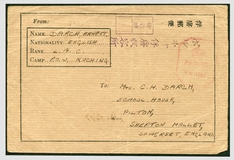 From:
NAME DARCH, ERNEST
NATIONALITY ENGLISH
RANK L.A.C.
CAMP P.O.W. KUCHING
To
MRS. C. H. DARCH,
SCHOOL HOUSE,
PILTON,
SHEPTON MALLET,
SOMERSET, ENGLAND